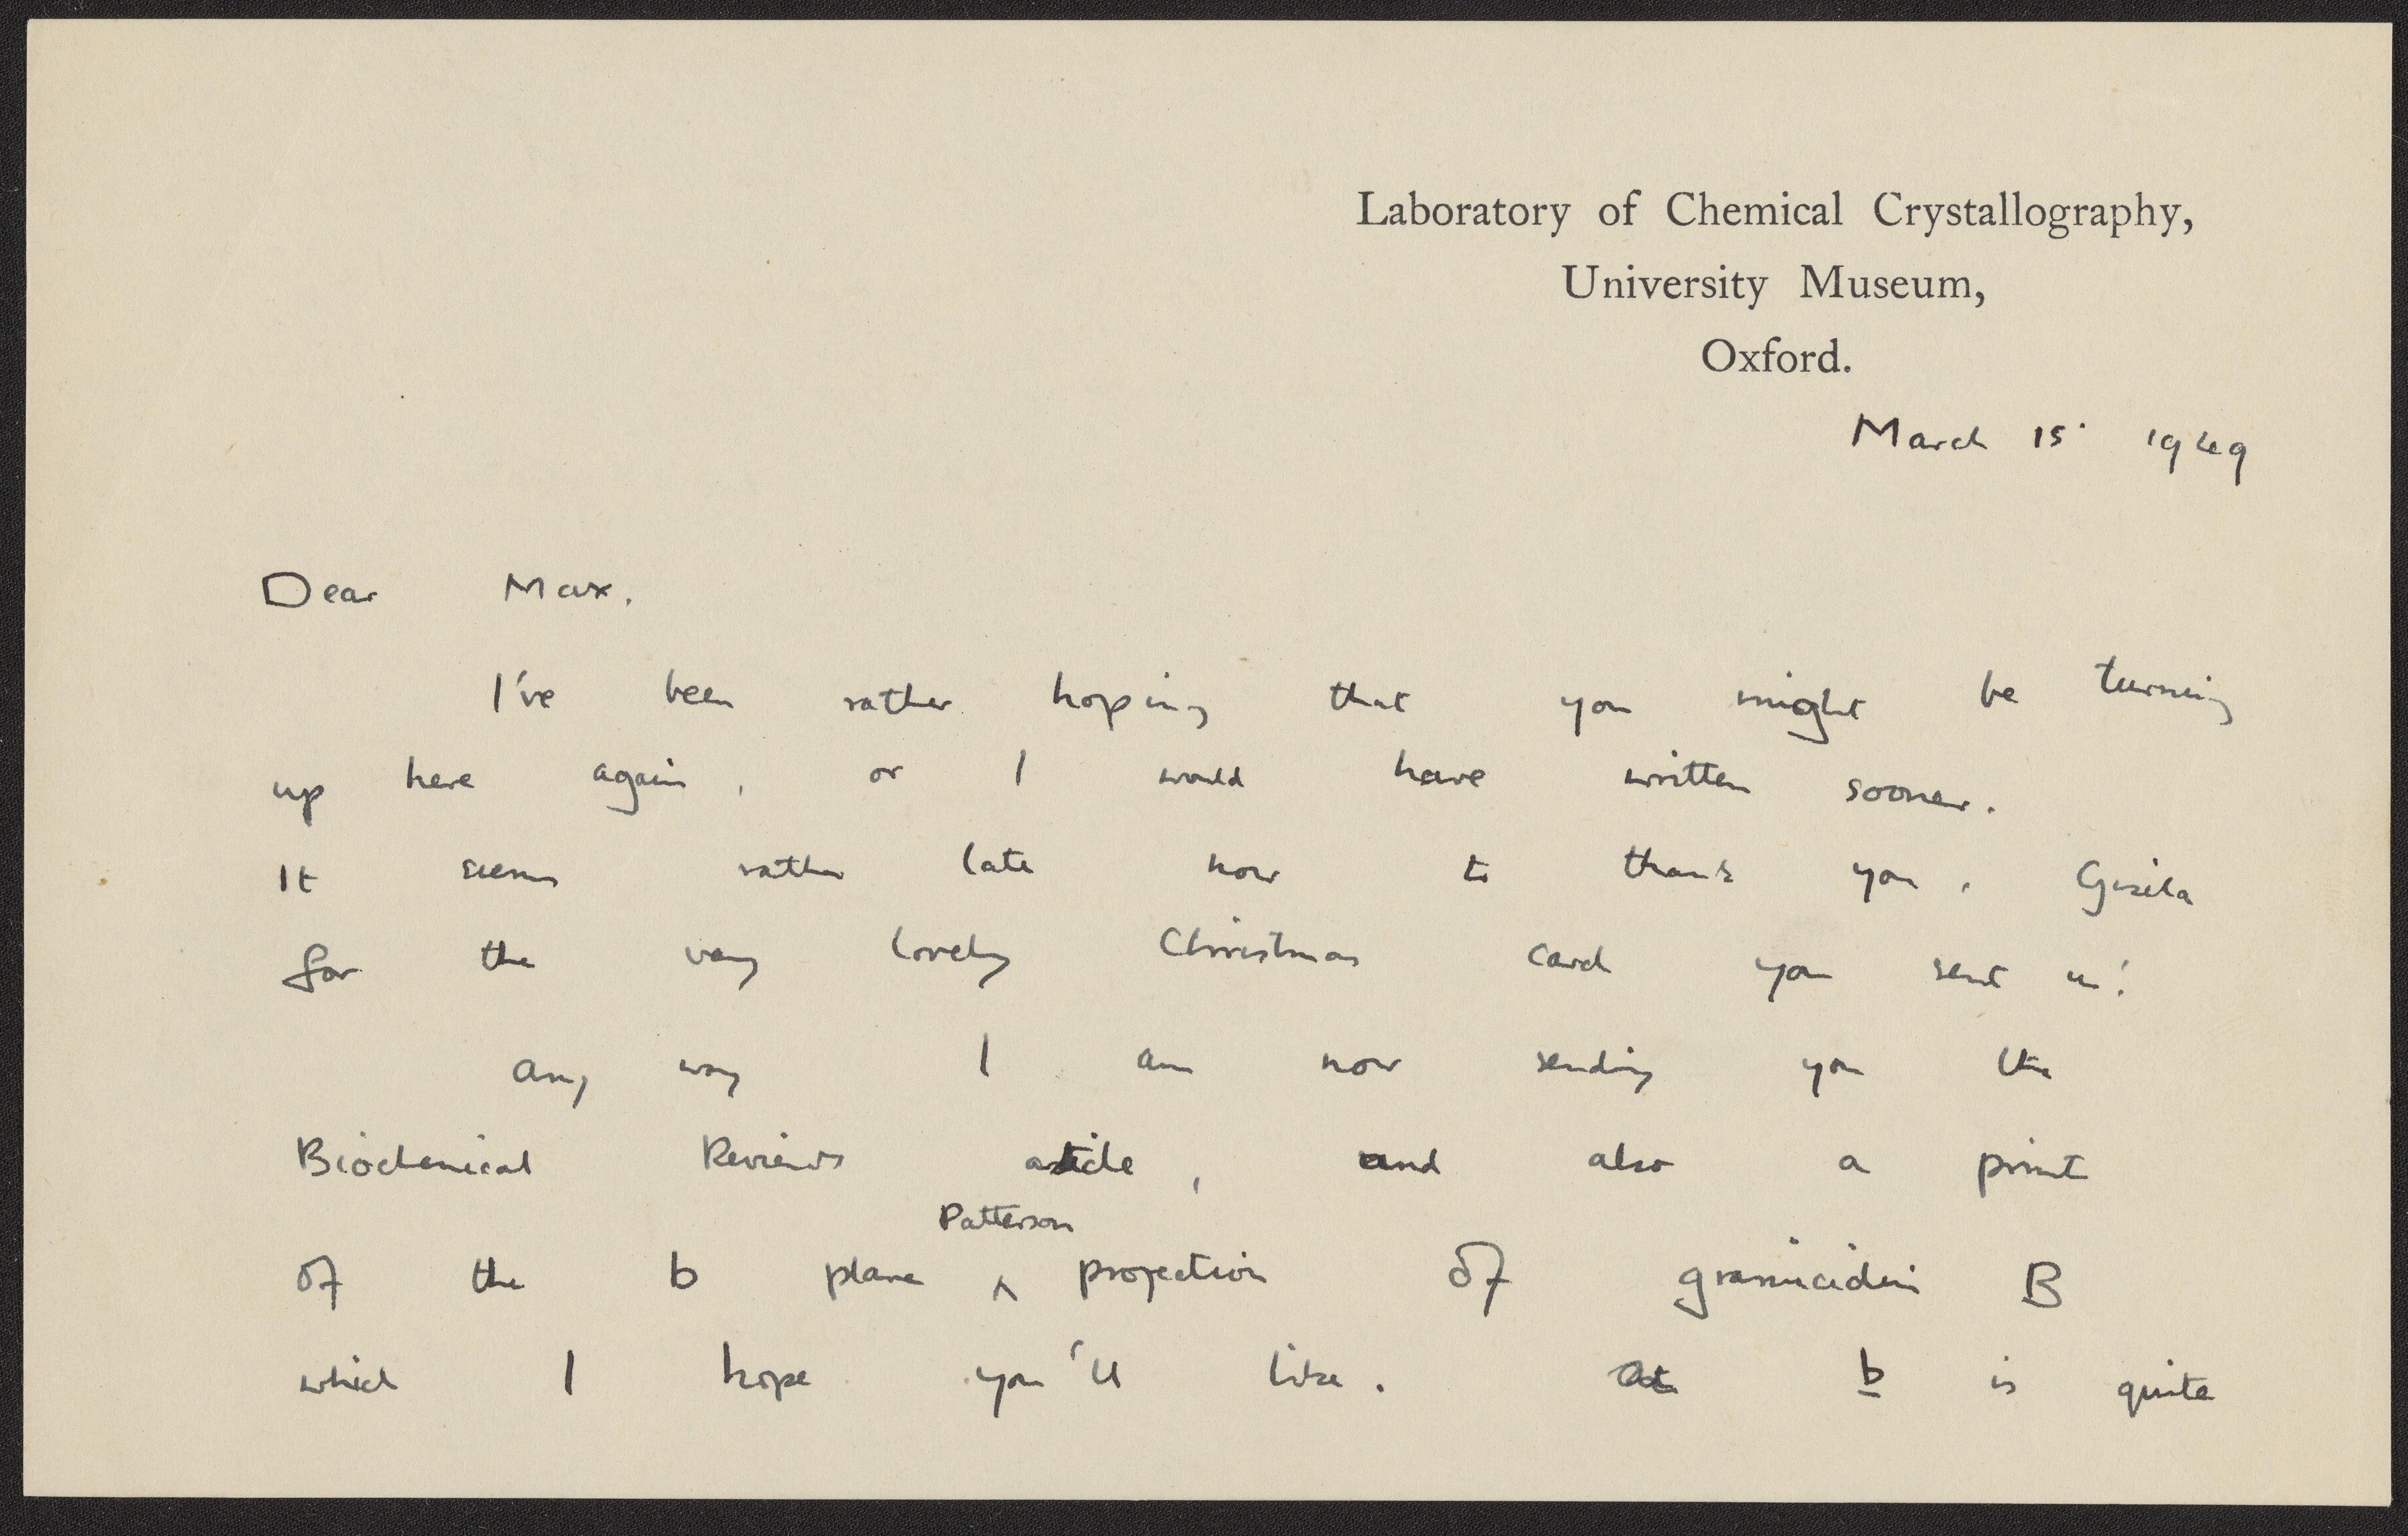 Laboratory of Chemical Crystallography,
University Museum,
Oxford.
March 15. 1949
Dear Max,
I've been rather hoping that you might be turning
up here again, or I would have written sooner.
It seems rather late now to thank you, Gisela
for the very lovely Christmas card you sent us!
Any way I am now sending you the
Biochemical Reviews article, and also a print
Patterson
of the b plane ^ projection of gramicidin B
which I hope you'll like. b is quite